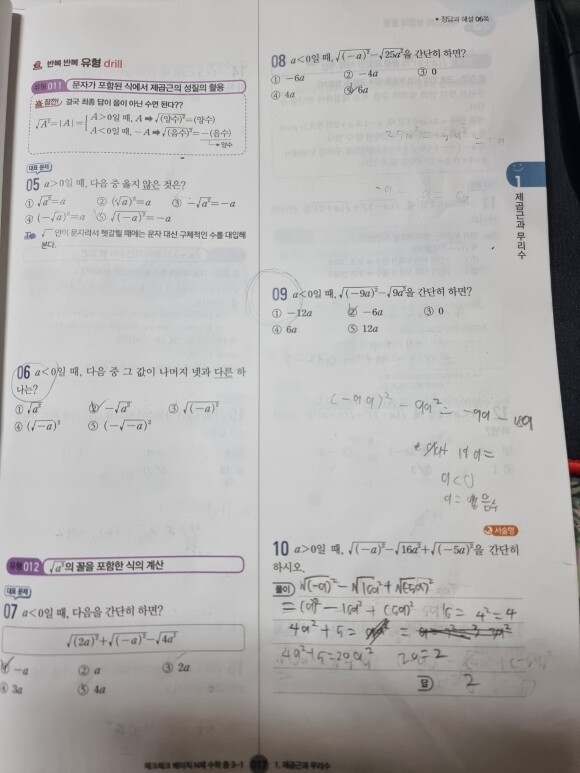 반복 반복 유형 drill
유형 011 문자가 포함된 식에서 제곱근의 성질의 활용
잠깐! 결국 최종 답이 음이 아닌 수면 된다??
√A²=|A|= A>0일 때, A ➡ √(양수)²=(양수)
A<0일 때, -A ➡ √(음수)²=-(음수)
양수
대표 문제
05 a>0일 때, 다음 중 옳지 않은 것은?
① √a²=a ② (√a)²=a ③ -√a²=-a
④ (-√a)²=a ⑤ √(-a)²=-a
Tip √ 안이 문자라서 헷갈릴 때에는 문자 대신 구체적인 수를 대입해
본다.
06 a<0일 때, 다음 중 그 값이 나머지 넷과 다른 하
나는?
① √a² ② -√a² ③ √(-a)²
④ (√-a)² ⑤ (-√-a)²
유형 012 √a²의 꼴을 포함한 식의 계산
대표 문제
07 a<0일 때, 다음을 간단히 하면?
√(2a)²+√(-a)²-√4a²
① -a ② a ③ 2a
④ 3a ⑤ 4a
• 정답과 해설 06쪽
08 a<0일 때, √(-a)²-√25a²을 간단히 하면?
① -6a ② -4a ③ 0
④ 4a ⑤ 6a
09 a<0일 때, √(-9a)²-√9a²을 간단히 하면?
① -12a ② -6a ③ 0
④ 6a ⑤ 12a
(-9a)² - 9a² = -9a -
a<0
a = 음수
서술형
10 a>0일 때, √(-a)²-√16a²+√(-5a)²을 간단히
하시오.
풀이 √(-a)² - √16a² + √(-5a)²
= (a)² - 16a² + (5a)² 16 = 4² = 4
4a² + 5 =
2a = 2
답 2
1 제곱근과 무리수
체크체크 베이직 N제 수학 중 3-1 017 1. 제곱근과 무리수